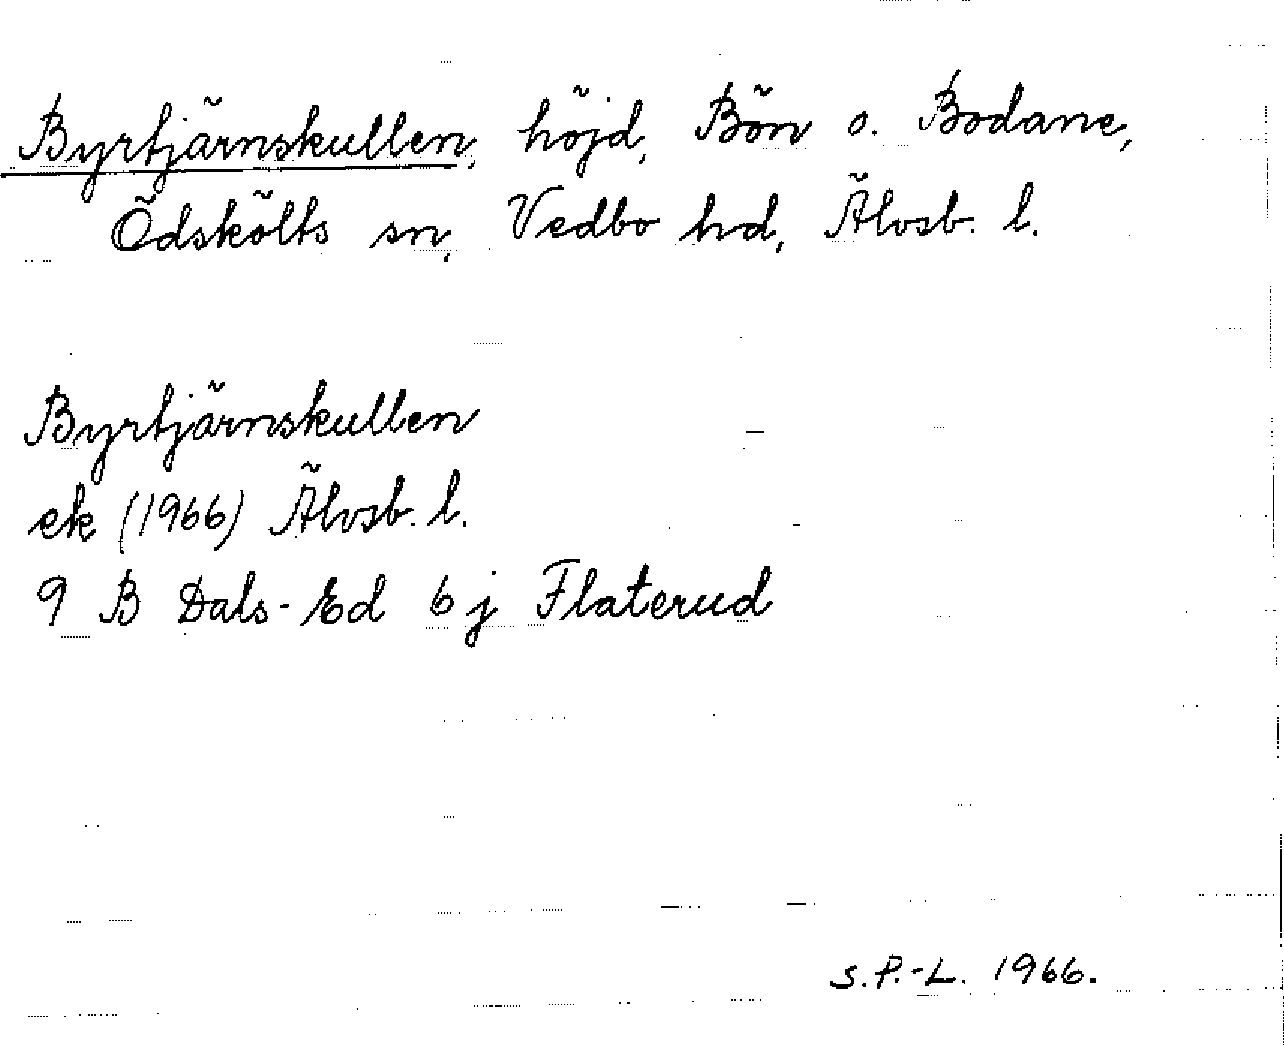 Byrtjärnskullen, höjd, Bön o. Bodane,
Ödskölts sn, Vedbo hd, Älvsb. l.
Byrtjärnskullen
ek (1966) Älvsb. l.
9 B Dals-Ed 6 j Flaterud
S.P.-L. 1966.